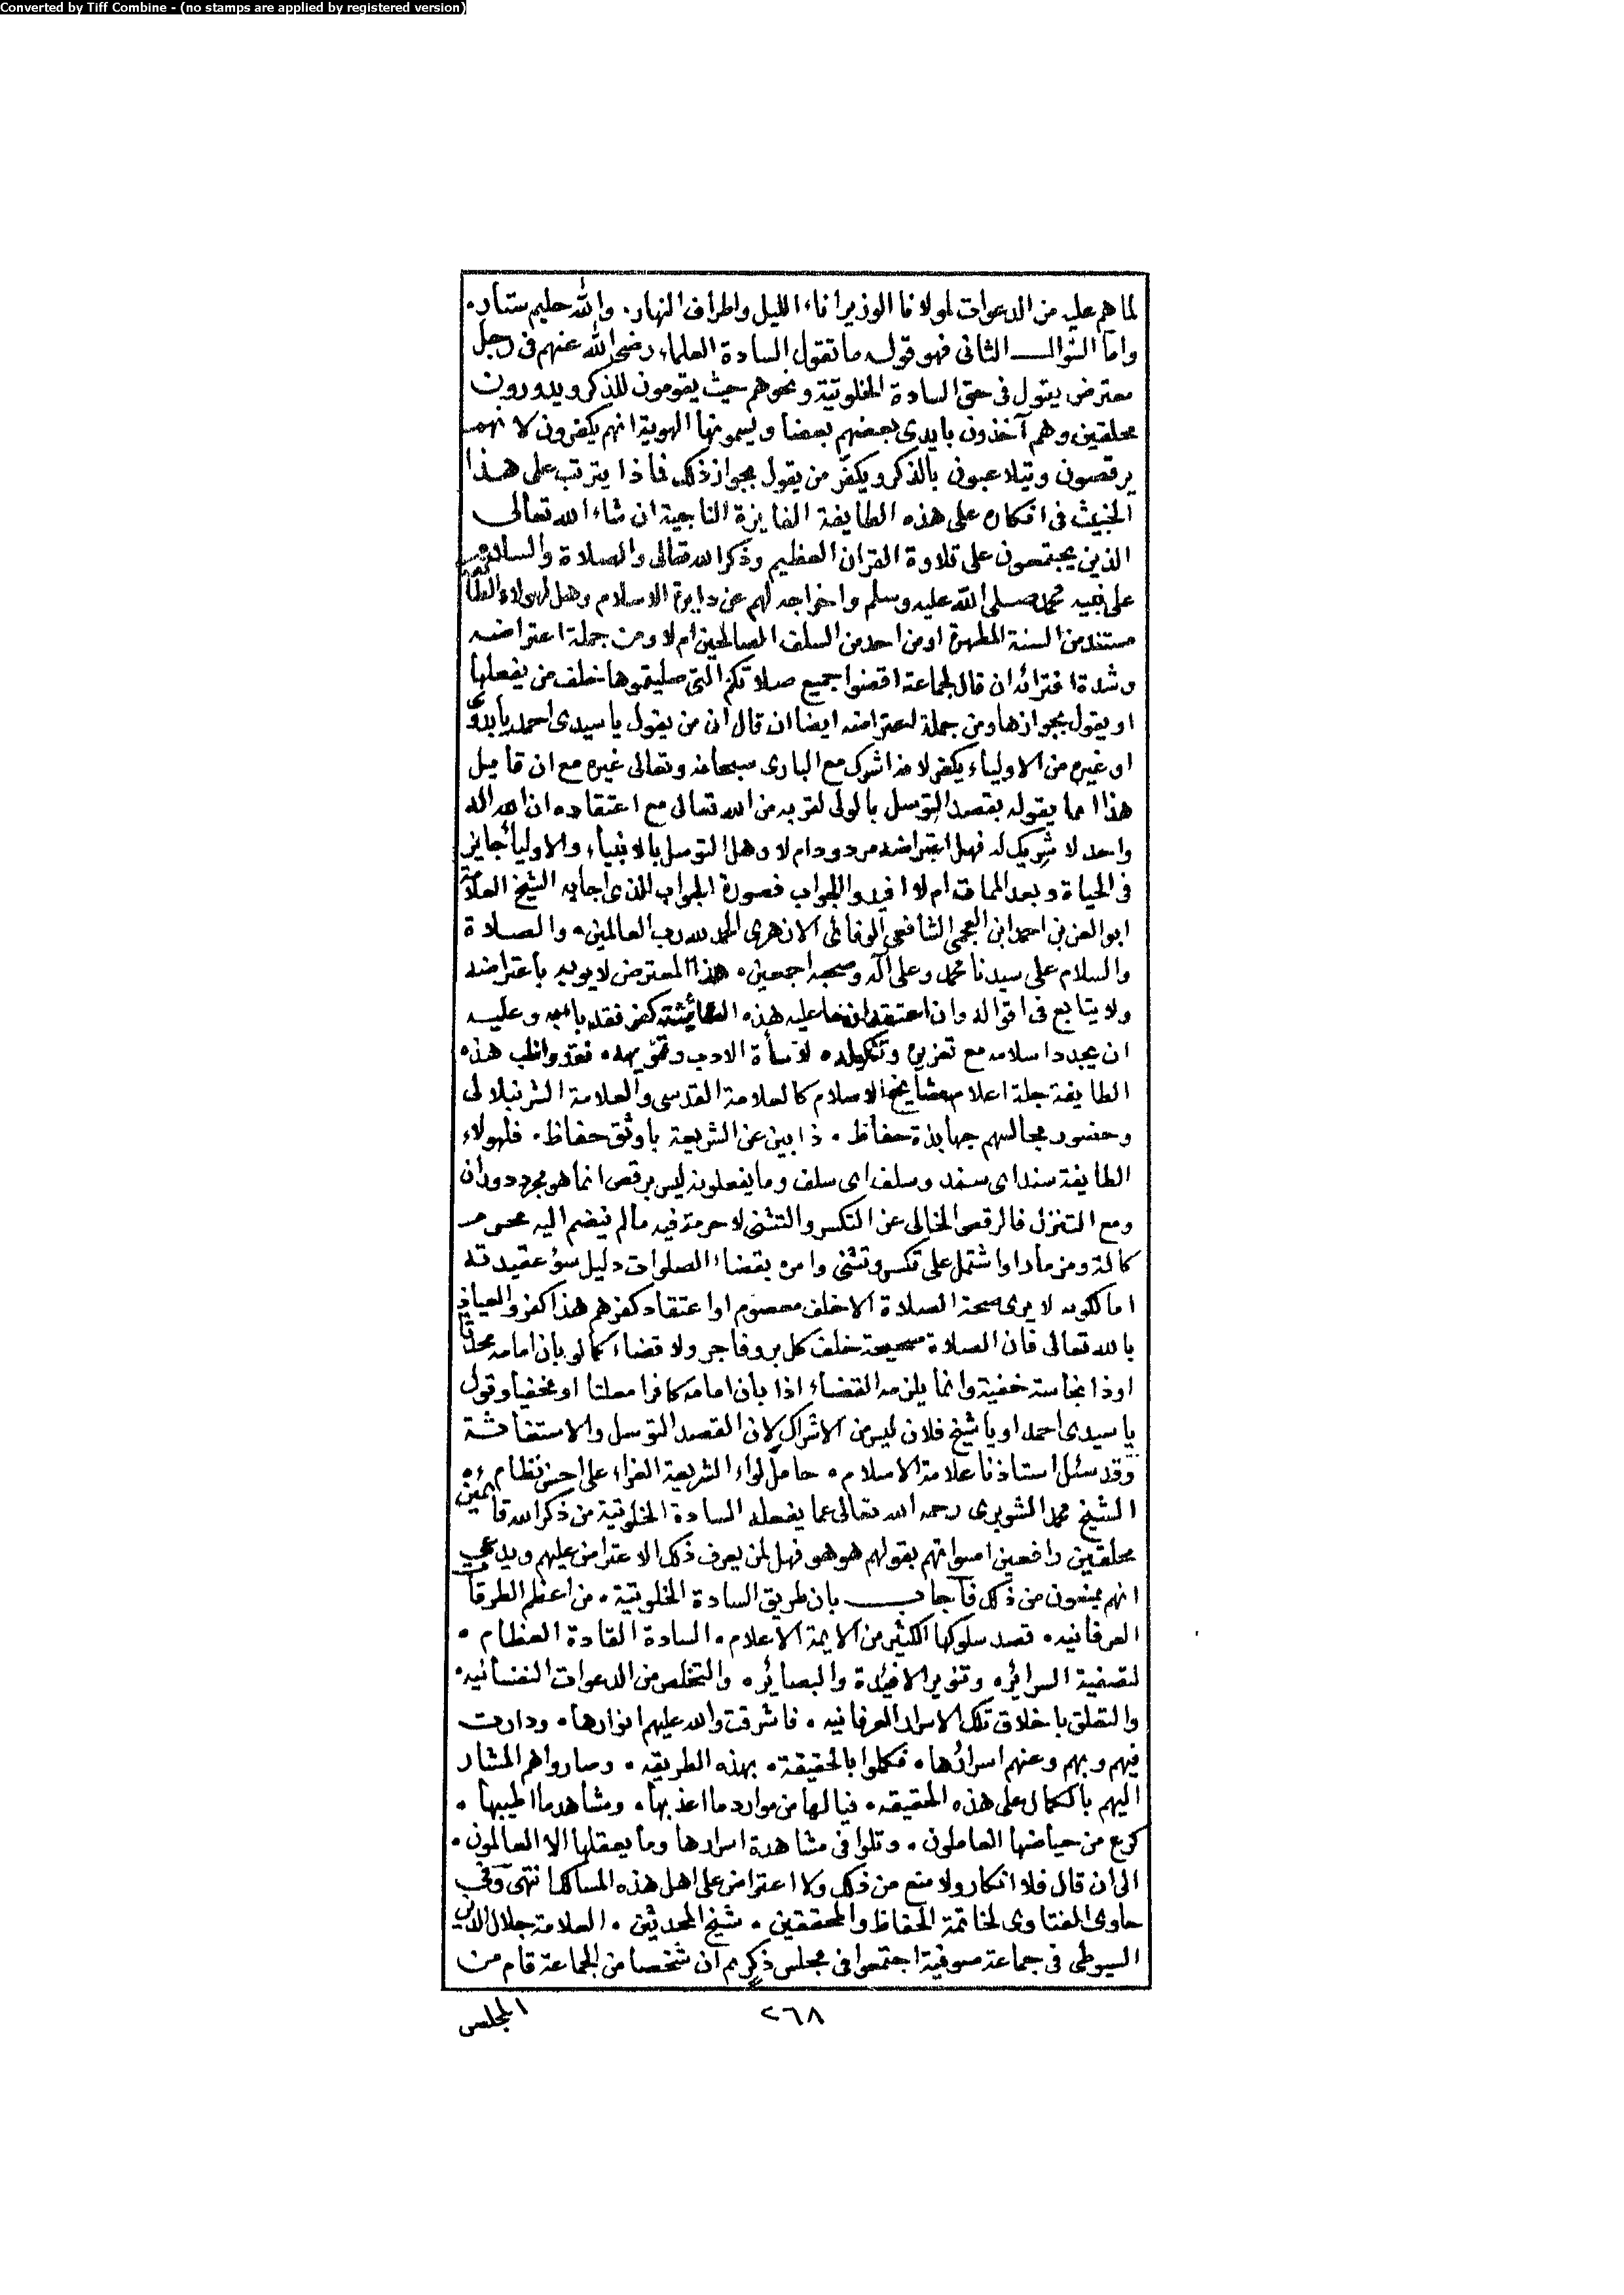 Converted by Tiff Combine - (no stamps are applied by registered version)
لما هم عليه من الدعوات لمولانا الوزير اناء الليل واطراف النهار. والله حليم ستار.
واما السؤال الثانى فهو قوله ما تقول السادة العلماء رضى الله عنهم فى رجل
معترض يقول فى حق السادة الخلوتية ونحوهم حيث يقومون للذكر ويدورون
محلقين وهم آخذون بايدى بعضهم بعضا ويسمونها الهوية انهم يكفرون لانهم
يرقصون ويتلاعبون بالذكر ويكفر من يقول بجواز ذلك فماذا يترتب على هذا
الخبيث فى انكاره على هذه الطايفة الفايزة الناجية ان شاء الله تعالى
الذين يجتمعون على تلاوة القران العظيم وذكر الله تعالى والصلاة والسلام
على نبيه محمد صلى الله عليه وسلم واخراجه لهم عن دايرة الاسلام وهل لهولاء الطائفة
مستند من السنة المطهرة او من احد من السلف الصالحين ام لا ومن جملة اعتراضه
وشدة افترائه ان قال لجماعة اقضوا جميع صلاتكم التى صليتموها خلف من يفعلها
او يقول بجوازها ومن جملة اعتراضه ايضا ان قال ان من يقول يا سيدى احمد يا بدوى
او غيره من الاولياء يكفر لانه اشرك مع البارى سبحانه وتعالى غيره مع ان قايل
هذا انما يقوله بقصد التوسل بالولى لقربه من الله تعالى مع اعتقاده ان الله اله
واحد لا شريك له فهل اعتراضه مردود ام لا وهل التوسل بالانبياء والاولياء جايز
فى الحياة وبعد الممات ام لا افيدوا الجواب فصورة الجواب الذى اجابه الشيخ العلامة
ابو العز بن احمد ابن العجمى الشافعى الوفائى الازهرى الحمد لله رب العالمين. والصلاة
والسلام على سيدنا محمد وعلى آله وصحبه اجمعين. هذا المعترض لا يوبه باعتراضه
ولا يتابع فى اقواله وان اعتقد ان ما عليه هذه الطائفة كفر فقد باء به وعليه
ان يجدد اسلامه مع تعزيره وتنكيله. لاسأة الادب وتهوره. فقد واظب هذه
الطايفة جلة اعلام مشايخ الاسلام كالعلامة القدسى والعلامة الشرنبلالى
وحضور مجالسهم جهابذة حفاظ. ذابين عن الشريعة باوثق حفاظ. فلهولاء
الطايفة سند اى سند وسلف اى سلف وما يفعلونه ليس برقص انما هو مجرد دوران
ومع التنزل فالرقص الخالى عن التكسر والتثنى لا حرمة فيه مالم ينضم اليه محرم
كالة ومزمار او اشتمل على تكسر وتثنى وامره بقضاء الصلوات دليل سؤ عقيدته
اما لكونه لا يرى صحة الصلاة الا خلف معصوم او اعتقاد كفرهم هذا كفر والعياذ
بالله تعالى فان الصلاة صحيحة خلف كل بر وفاجر ولا قضاء كما لو بان امامه محدثا
او ذا نجاسة خفية وانما يلزمه القضاء اذا بان امامه كافرا معلنا او مخفيا وقول
يا سيدى احمد او يا شيخ فلان ليس من الاشراك لان القصد التوسل والاستغاثة
وقد سئل استاذنا علامة الاسلام. حامل لواء الشريعة الغراء على احسن نظام.
الشيخ محمد الشوبرى رحمه الله تعالى عما يفعله السادة الخلوتية من ذكر الله قائمين
محلقين رافعين اصواتهم بقولهم هو هو فهل لمن يعرف ذلك الاعتراض عليهم ويدعى
انهم يمنعون من ذلك فأجاب بان طريق السادة الخلوتية. من اعظم الطرقات
العرفانيه. قصد سلوكها الكثير من الايمة الاعلام. السادة القادة العظام.
لتصفية السرائر. وتنوير الافيدة والبصائر. والتخلص من الدعوات النفسانيه.
والتعلق باخلاق تلك الاسرار العرفانيه. فاشرقت والله عليهم انوارها. ودارت
فيهم وبهم وعنهم اسرارها. فكملوا بالحقيقة. بهذه الطريقه. وصاروا هم المشار
اليهم بالكمال على هذه الحقيقه. فيا لها من موارد ما اعذبها. ومشاهد ما اطيبها.
كرع من حياضها العاملون. وتلوا فى مشاهدة اسرارها وما يعقلها الا العالمون.
الى ان قال فلا انكار ولا منع من ذلك ولا اعتراض على اهل هذه المسالك انتهى وفى
حاوى الفتاوى لخاتمة الحفاظ والمحققين. شيخ المحدثين. العلامة جلال الدين
السيوطى فى جماعة صوفية اجتمعوا فى مجلس ذكر ثم ان شخصا من الجماعة قام من
المجلس
٢٦٨